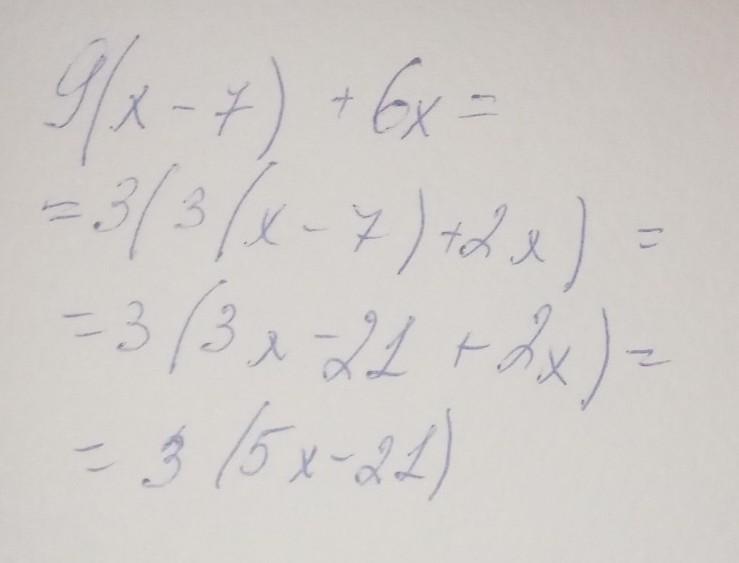 9(x-7) +6x=
=3(3(x-7)+2x)=
=3(3x-21+2x)=
=3(5x-21)